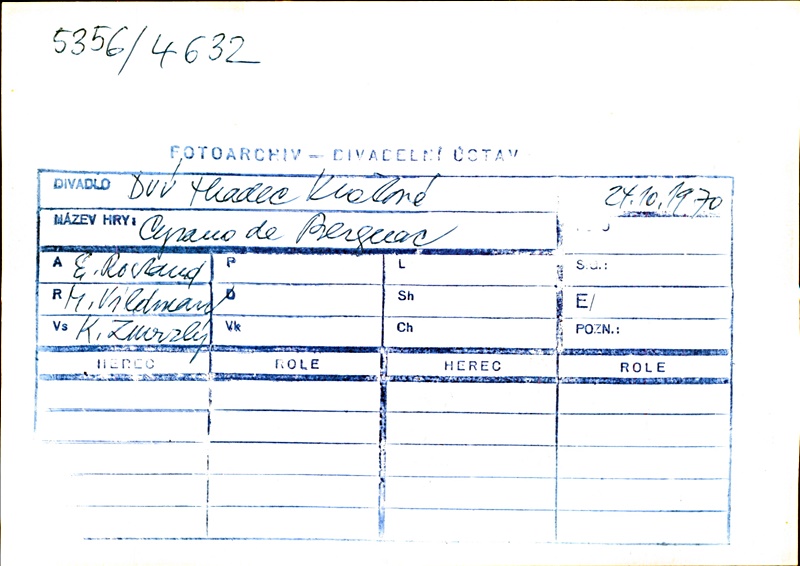 5356/4632
FOTOARCHIV — DIVADELNÍ ÚSTAV
DIVADLO DVÚ Hradec Králové 24.10.1970
NÁZEV HRY: Cyrano de Bergerac
A E. Rostand P L S.G.:
R M. Vildman D Sh E/
Vs K. Zmrzlý Vk Ch POZN.:
HEREC ROLE HEREC ROLE